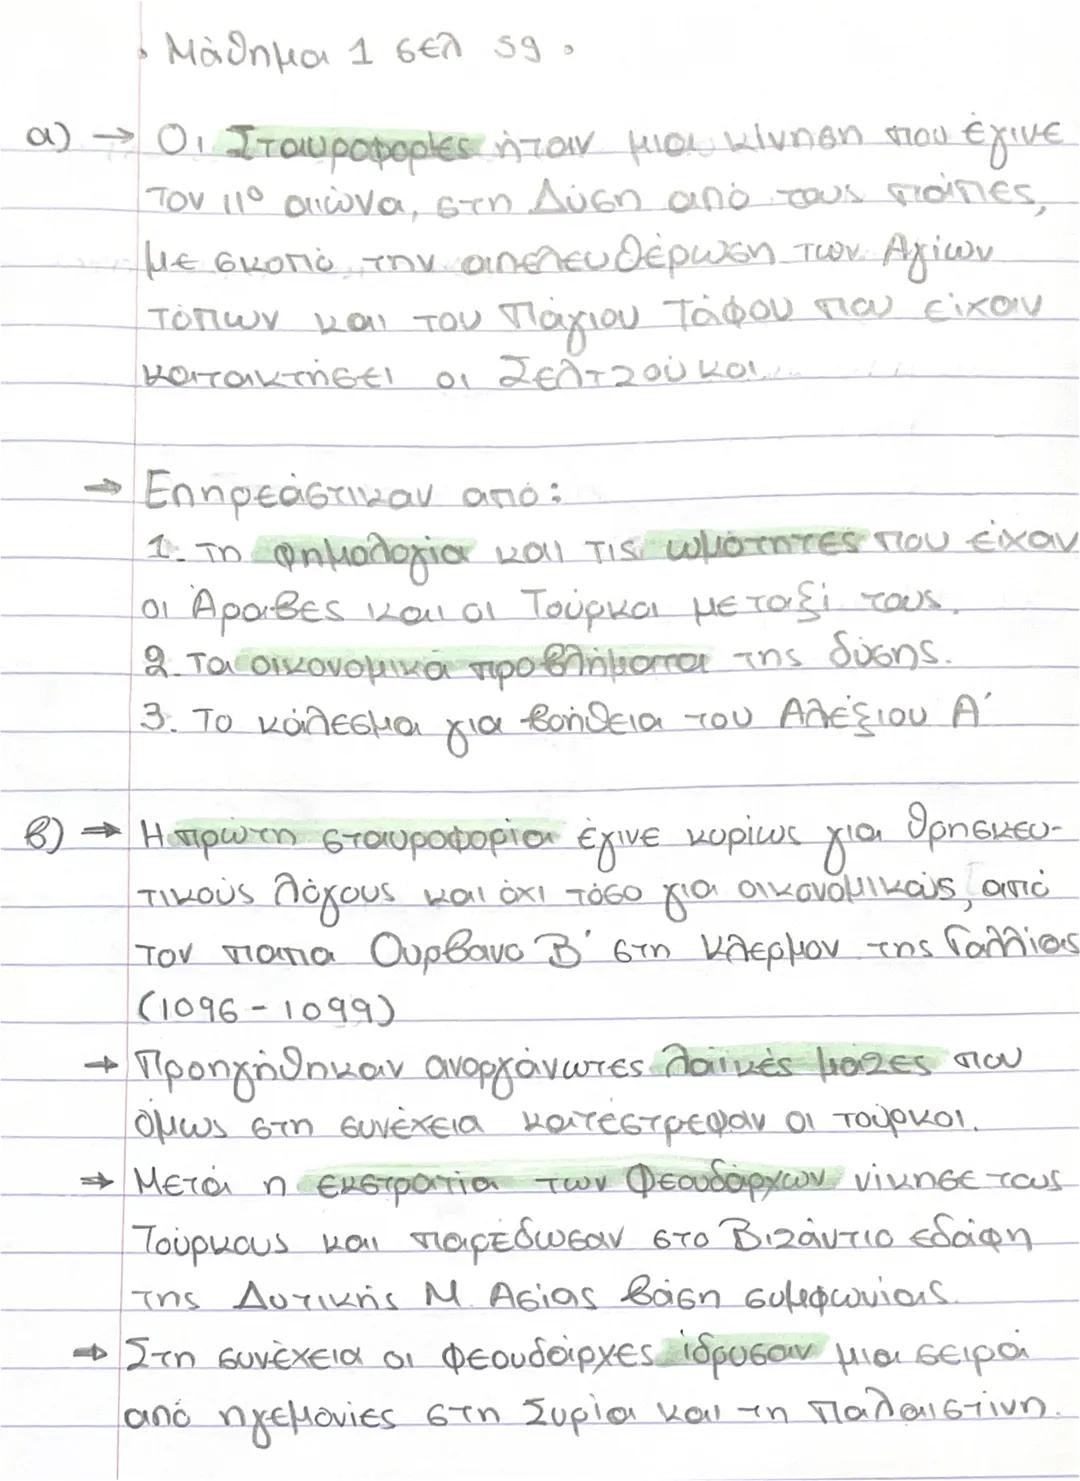 . Μάθημα 1 σελ 59.
α) → Οι Σταυροφορίες ήταν μια κίνηση που έγινε
τον 11º αιώνα, στη Δύση από τους πάπες,
με σκοπό την απελευθέρωση των Αγίων
Τόπων και του Πάγιου Τάφου που είχαν
κατακτήσει οι Σελτζούκοι.
→ Επηρεάστικαν από:
1. Τη φημολογία και τις ωμότητες που είχαν
οι Άραβες και οι Τούρκοι μεταξί τους.
2. Τα οικονομικά προβλήματα της δύσης.
3. Το κάλεσμα για βοήθεια του Αλέξιου Α΄
β) → Η πρώτη σταυροφορία έγινε κυρίως για θρησκευ-
τικούς λόγους και όχι τόσο για οικονομικούς, από
τον παπα Ουρβανο Β΄ στη Κλερμον της Γαλλίας
(1096 - 1099)
→ Προηγήθηκαν ανοργάνωτες λαϊκές μάζες που
όμως στη συνέχεια κατέστρεψαν οι τούρκοι.
→ Μετά η εκστρατία των Φεουδάρχων νίκησε τους
Τούρκους και παρέδωσαν στο Βιζάντιο εδάφη
της Δυτικής Μ. Ασίας βάση συμφωνίας.
→ Στη συνέχεια οι φεουδάρχες ίδρυσαν μια σειρά
από ηγεμονίες στη Συρία και τη Παλαιστίνη.